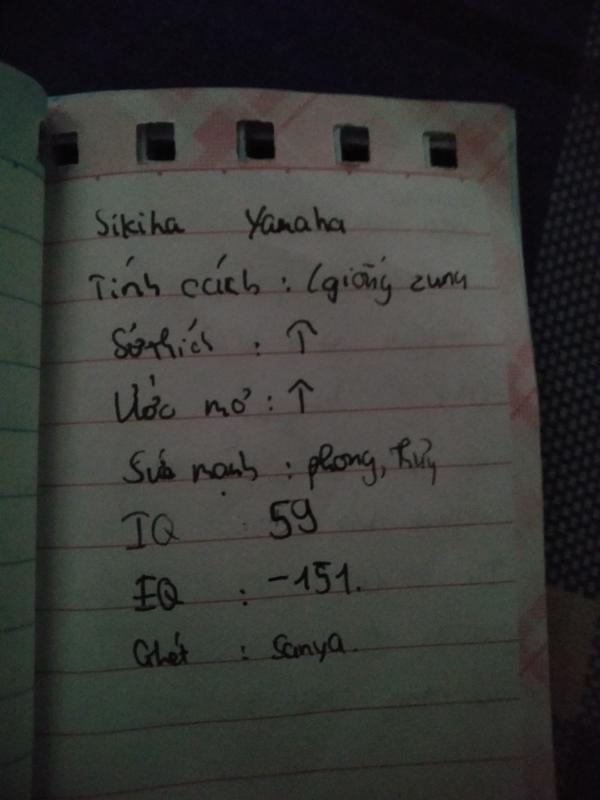 Sikiha Yamaha
Tính cách : (giống zuny
Sở thích : ↑
Ước mơ : ↑
Sức mạnh : phong, thủy
IQ : 59
EQ : -151.
Ghét : Sanya.